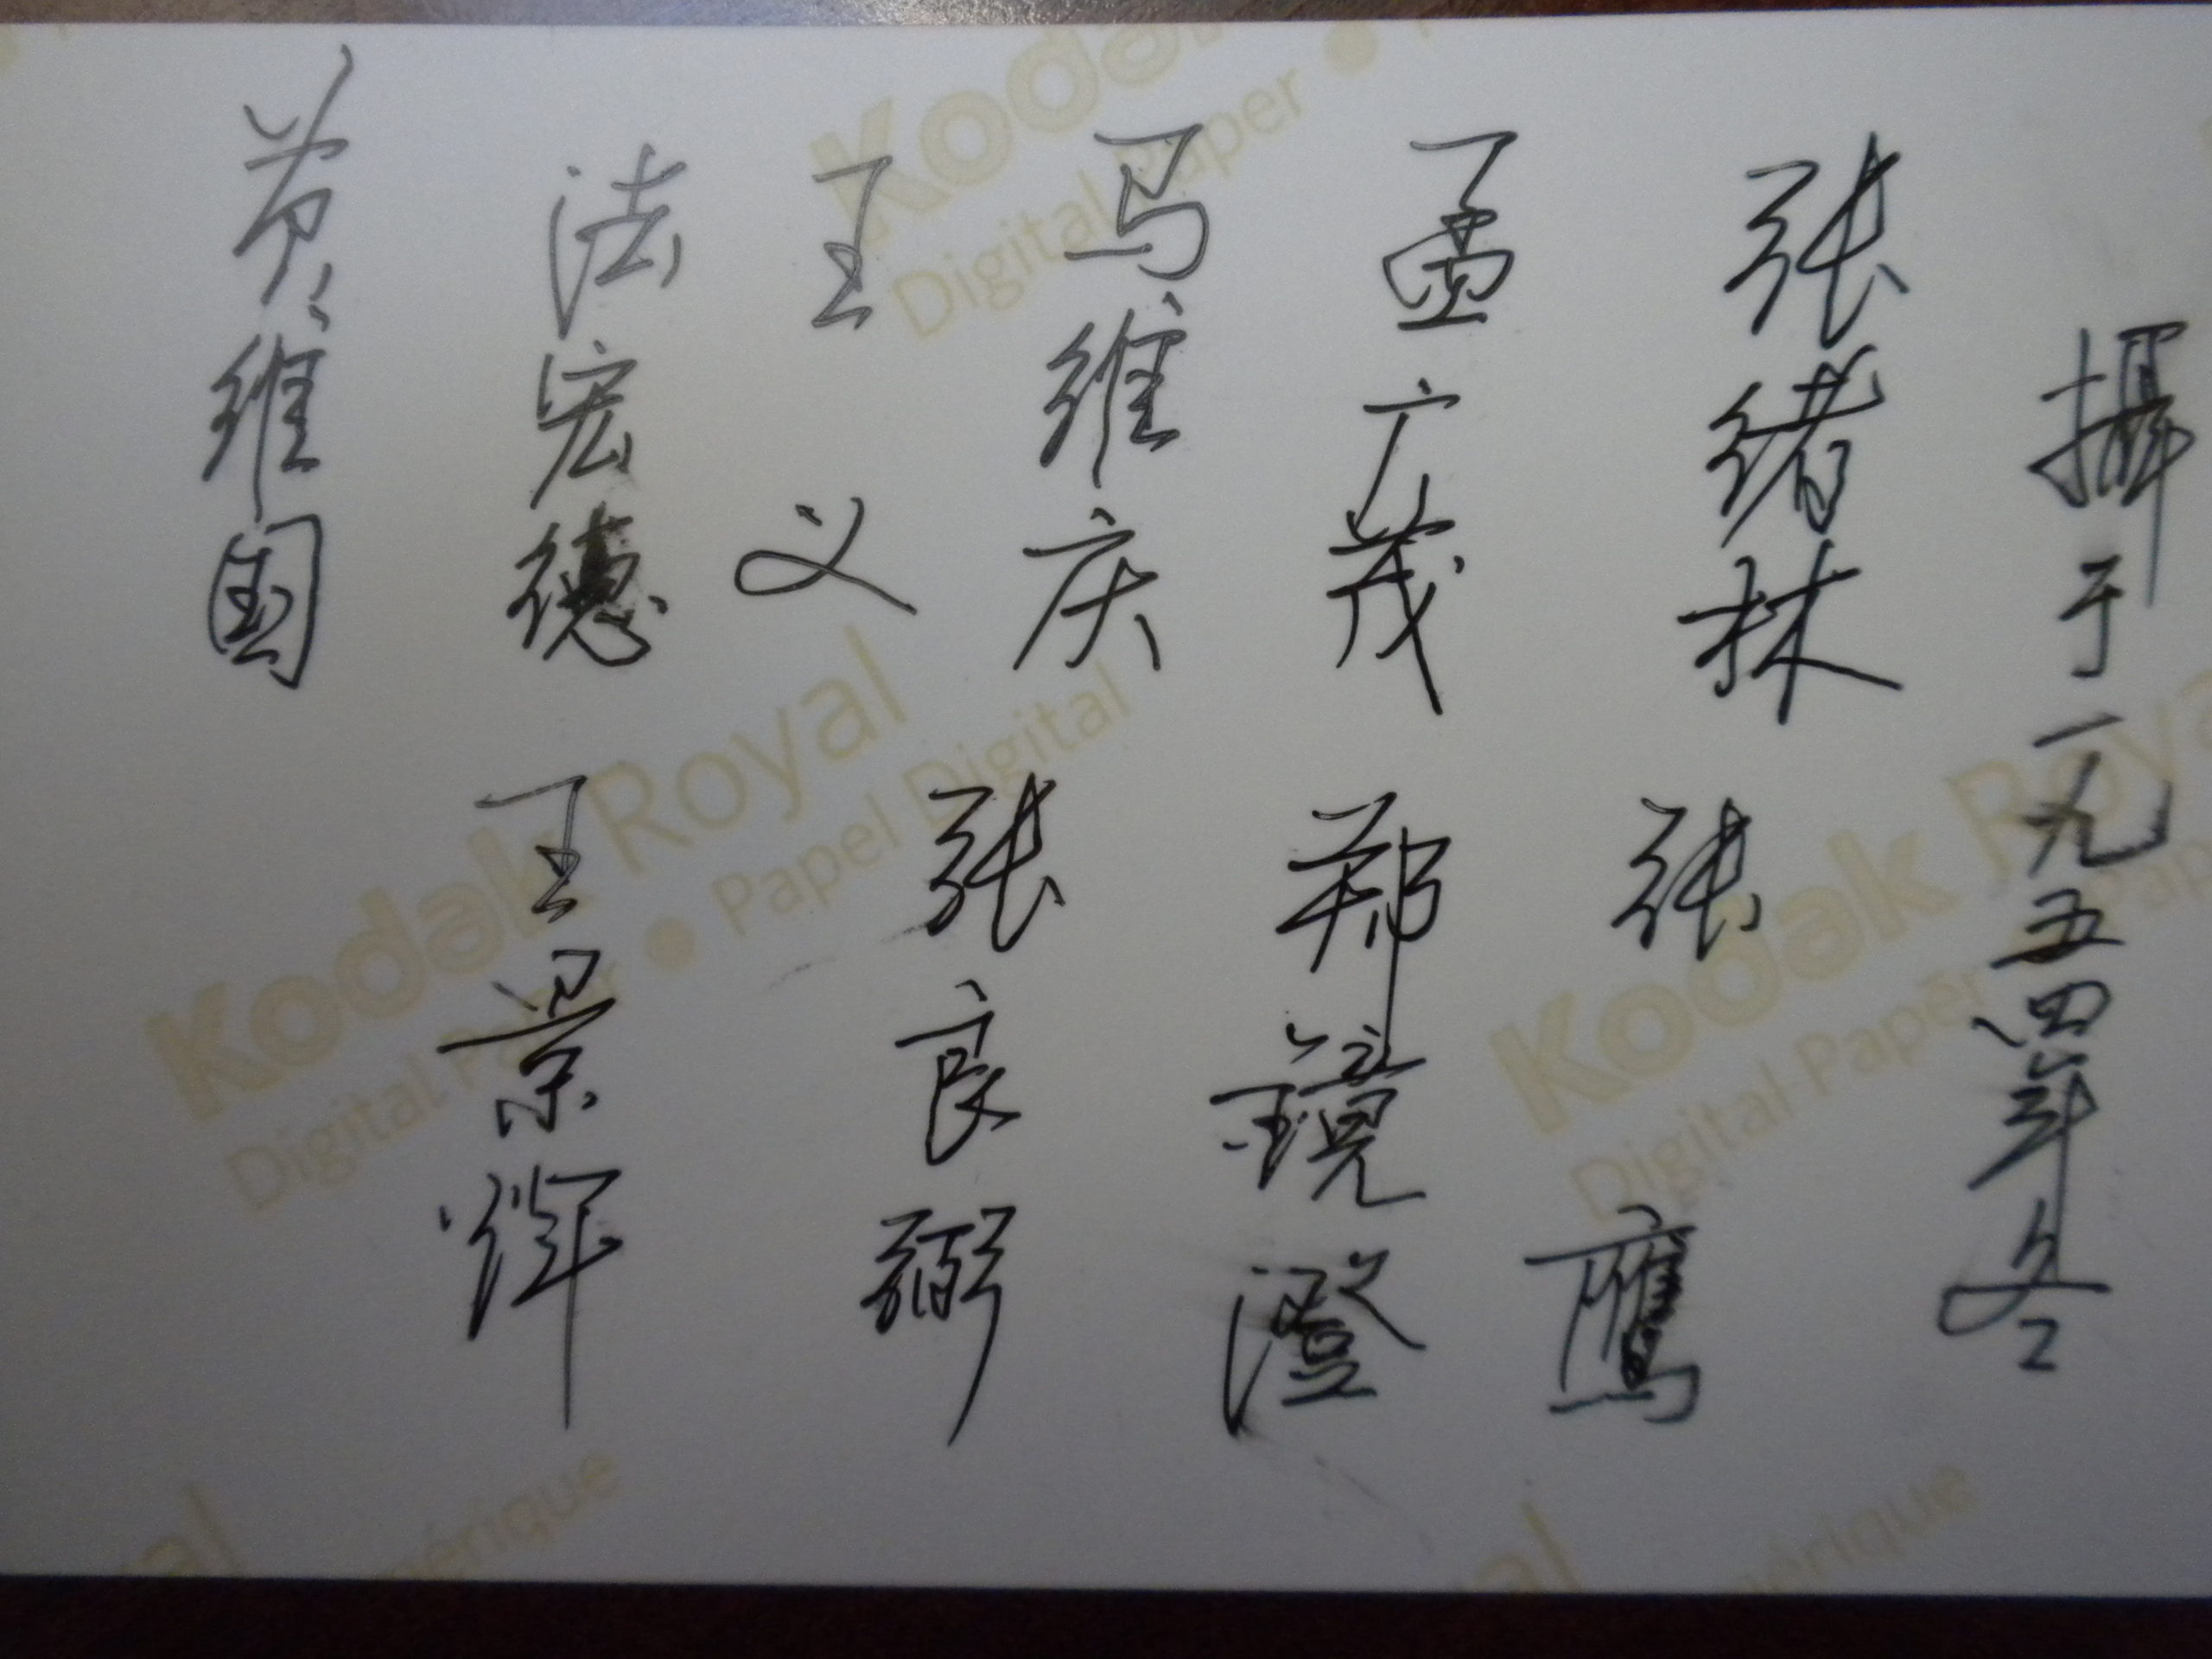 攝于一九五四年冬
张绪林
孟广茂
马维庆
王义
法宏德
黄维国
张鹰
郑镜澄
张良弼
王景辉
Kodak
Digital Paper
Kodak Royal
Digital Paper
Papel Digital
Kodak Royal
Digital Paper
Paper